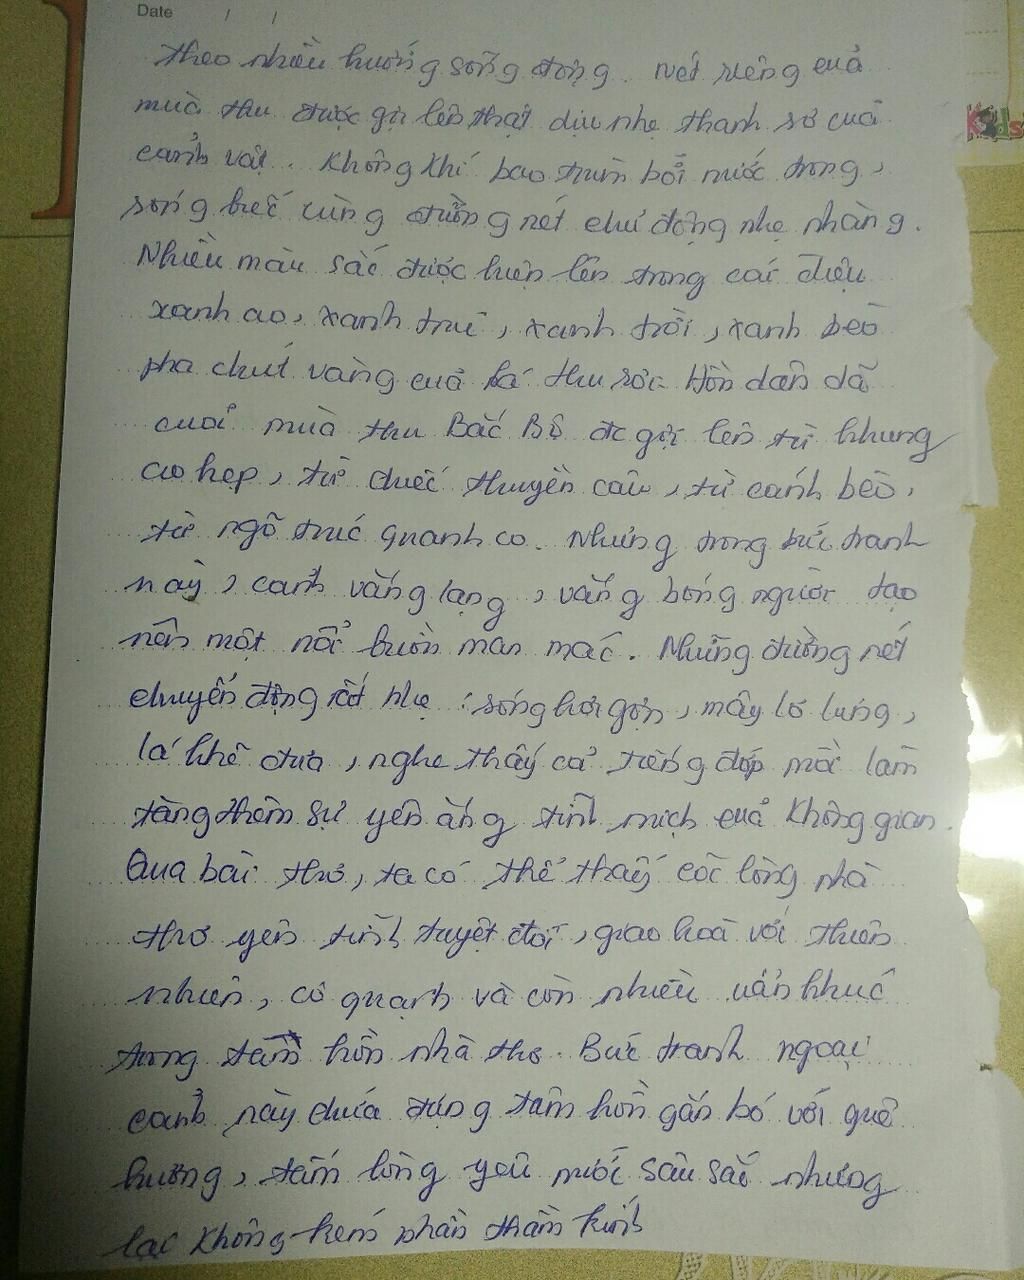 Date / /
theo nhiều hướng sống động. Nét riêng của
mùa thu được gợi lên thật dịu nhẹ thanh sơ của
cảnh vật. Không khí bao trùm bởi nước trong,
sóng biếc cùng đường nét chuyển động nhẹ nhàng.
Nhiều màu sắc được hiện lên trong cái điệu
xanh ao, xanh trúc, xanh trời, xanh bèo
pha chút vàng của lá thu rơi. Hồn dân dã
của mùa thu Bắc Bộ đc gợi lên từ khung
ao hẹp, từ chiếc thuyền câu, từ cánh bèo,
từ ngõ trúc quanh co. Nhưng trong bức tranh
này, cảnh vắng lặng, vắng bóng người tạo
nên một nỗi buồn man mác. Những đường nét
chuyển động rất nhẹ: sóng hơi gợn, mây lơ lửng,
lá khẽ đưa, nghe thấy cả tiếng đớp mồi làm
tăng thêm sự yên ắng tĩnh mịch của không gian.
Qua bài thơ, ta có thể thấy cõi lòng nhà
thơ yên tĩnh tuyệt đối, giao hoà với thiên
nhiên, cô quạnh và còn nhiều uẩn khúc
trong tâm hồn nhà thơ. Bức tranh ngoại
cảnh này chứa đựng tâm hồn gắn bó với quê
hương, tấm lòng yêu nước sâu sắc nhưng
lại không kém phần thầm kín
Kids